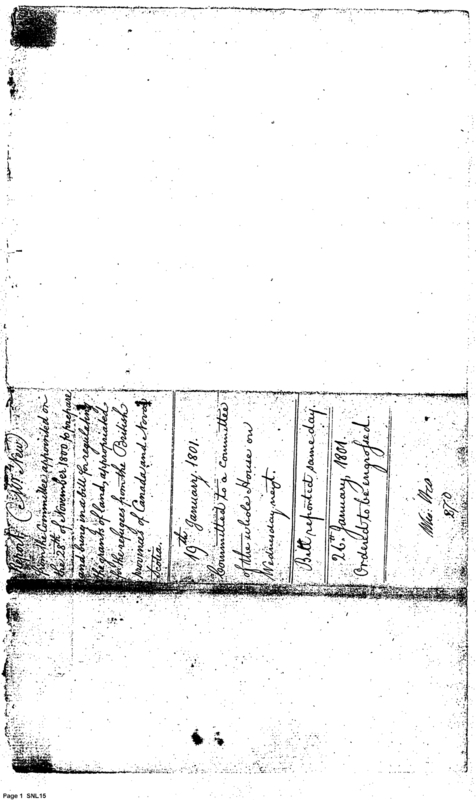 Report
from the Committee appointed on
the 28th of November 1800 to prepare
and bring in a bill for regulating
the grants of land, appropriated
for the refugees from the British
provinces of Canada and Nova
Scotia.
19th January 1801.
Committed to a committee
of the whole House on
Wednesday next.
Bill reported same day
26th January, 1801.
Ordered to be engrossed.
870
Page 1 SNL15